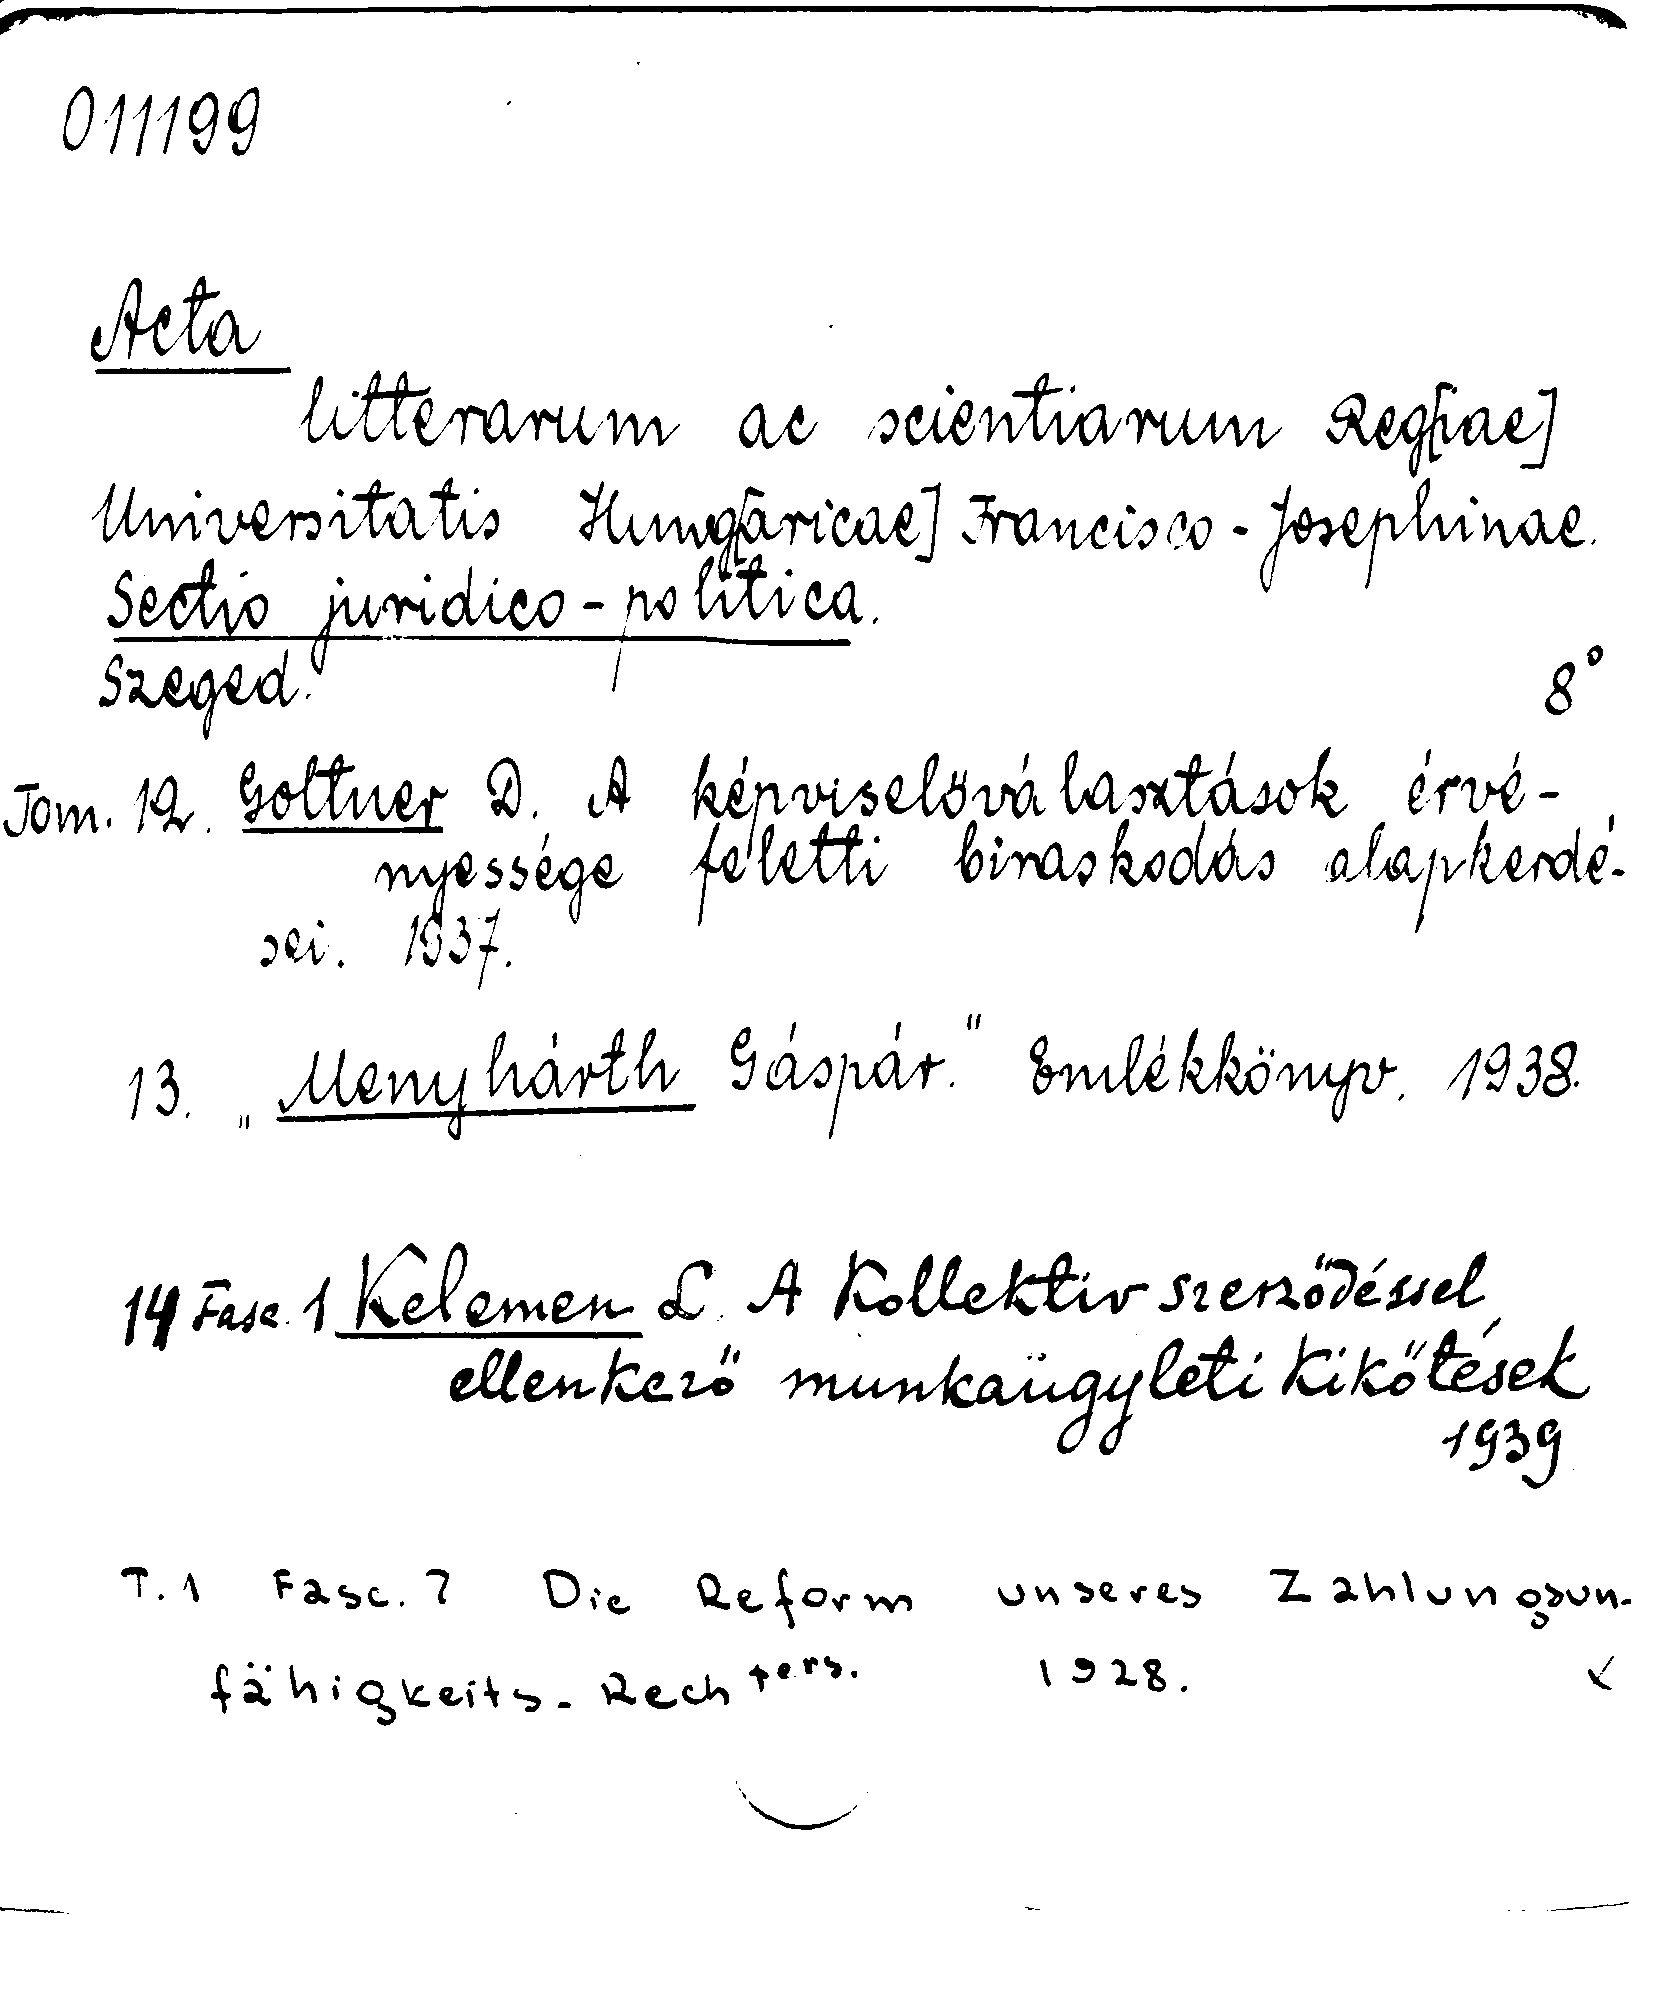 011199
Acta
litterarum ac scientiarum Reg[iae]
Universitatis Hung[aricae] Francisco-Josephinae.
Sectio juridico-politica.
Szeged. 8°
Tom. 12. Goltner D. A képviselöválasztások érvé-
nyessége feletti biraskodás alapkerdé-
sei. 1937.
13. „Menyhárth Gáspár." Emlékkönyv. 1938.
14 Fasc. 1 Kelemen L. A Kollektiv szerződéssel
ellenkező munkaügyleti Kikőtések
1939
T. 1 Fasc. 7 Die Reform unseres Zahlungsun-
fähigkeits-Rechters. 1928.